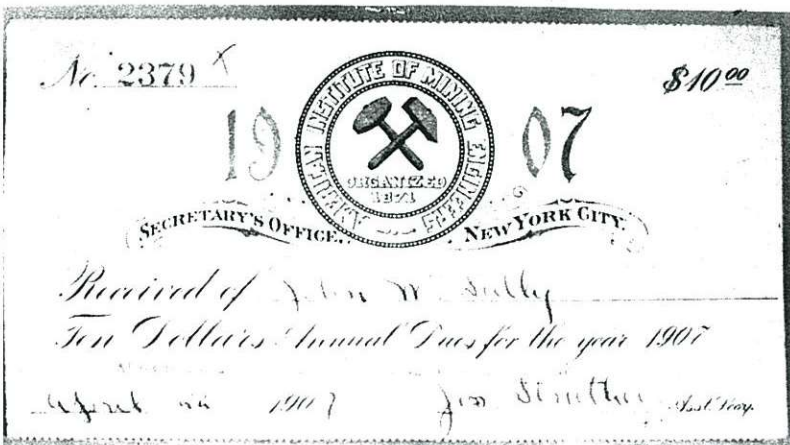 No. 2379
$10.00
1907
AMERICAN INSTITUTE OF MINING ENGINEERS
ORGANIZED
1871
SECRETARY'S OFFICE, NEW YORK CITY.
Received of John W Sully
Ten Dollars Annual Dues for the year 1907
April 1907 Jos. Struthers Asst. Secy.